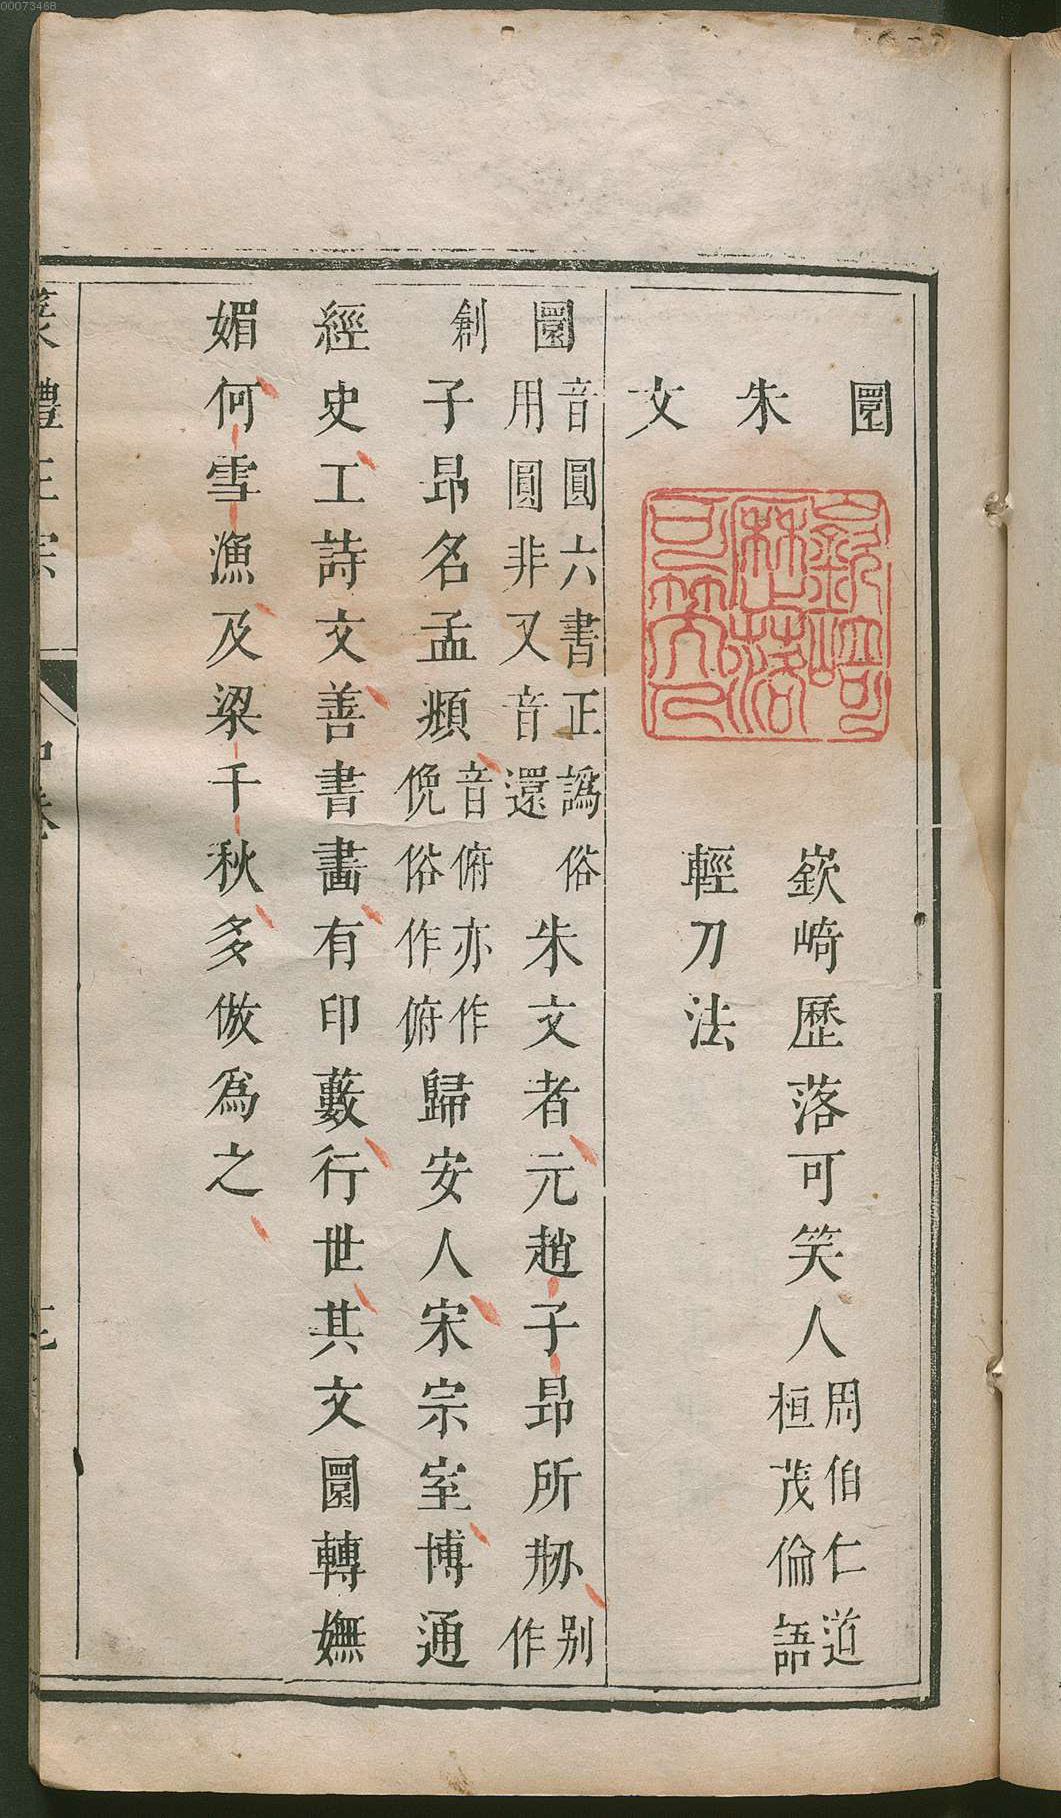 00073468
圜朱文
嶔﨑歷落可笑人周伯仁道桓茂倫語
輕刀法
圜音圓六書正譌俗用圓非又音還朱文者元趙子昂所刱别作
創子昂名孟頫音俯亦作俛俗作俯歸安人宋宗室博通
經史工詩文善書畵有印藪行世其文圜轉嫵
媚何雪漁及梁千秋多倣爲之